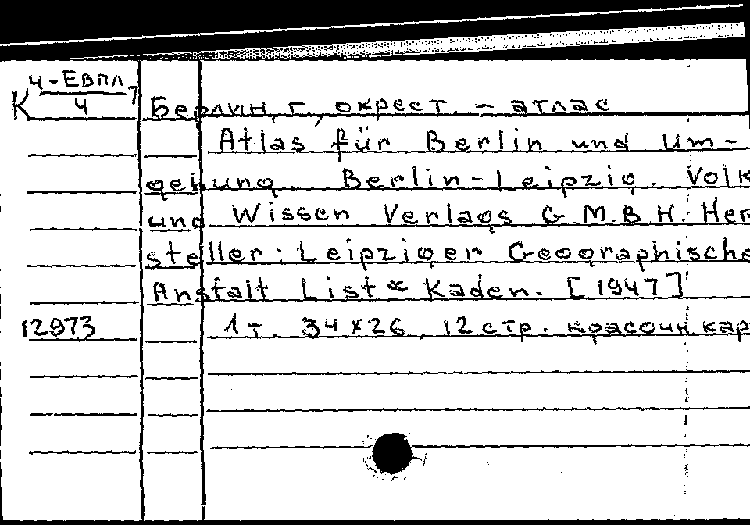 Ч-Евпл
К 4 7
Берлин, г., окрест. - атлас
Atlas für Berlin und Um-
gebung. Berlin-Leipzig. Volk
und Wissen Verlags G.M.B.H. Her-
steller: Leipziger Geographische
Anstalt List & Kaden. [1947]
12973 1 т. 34x26, 12 стр. красочн. кар